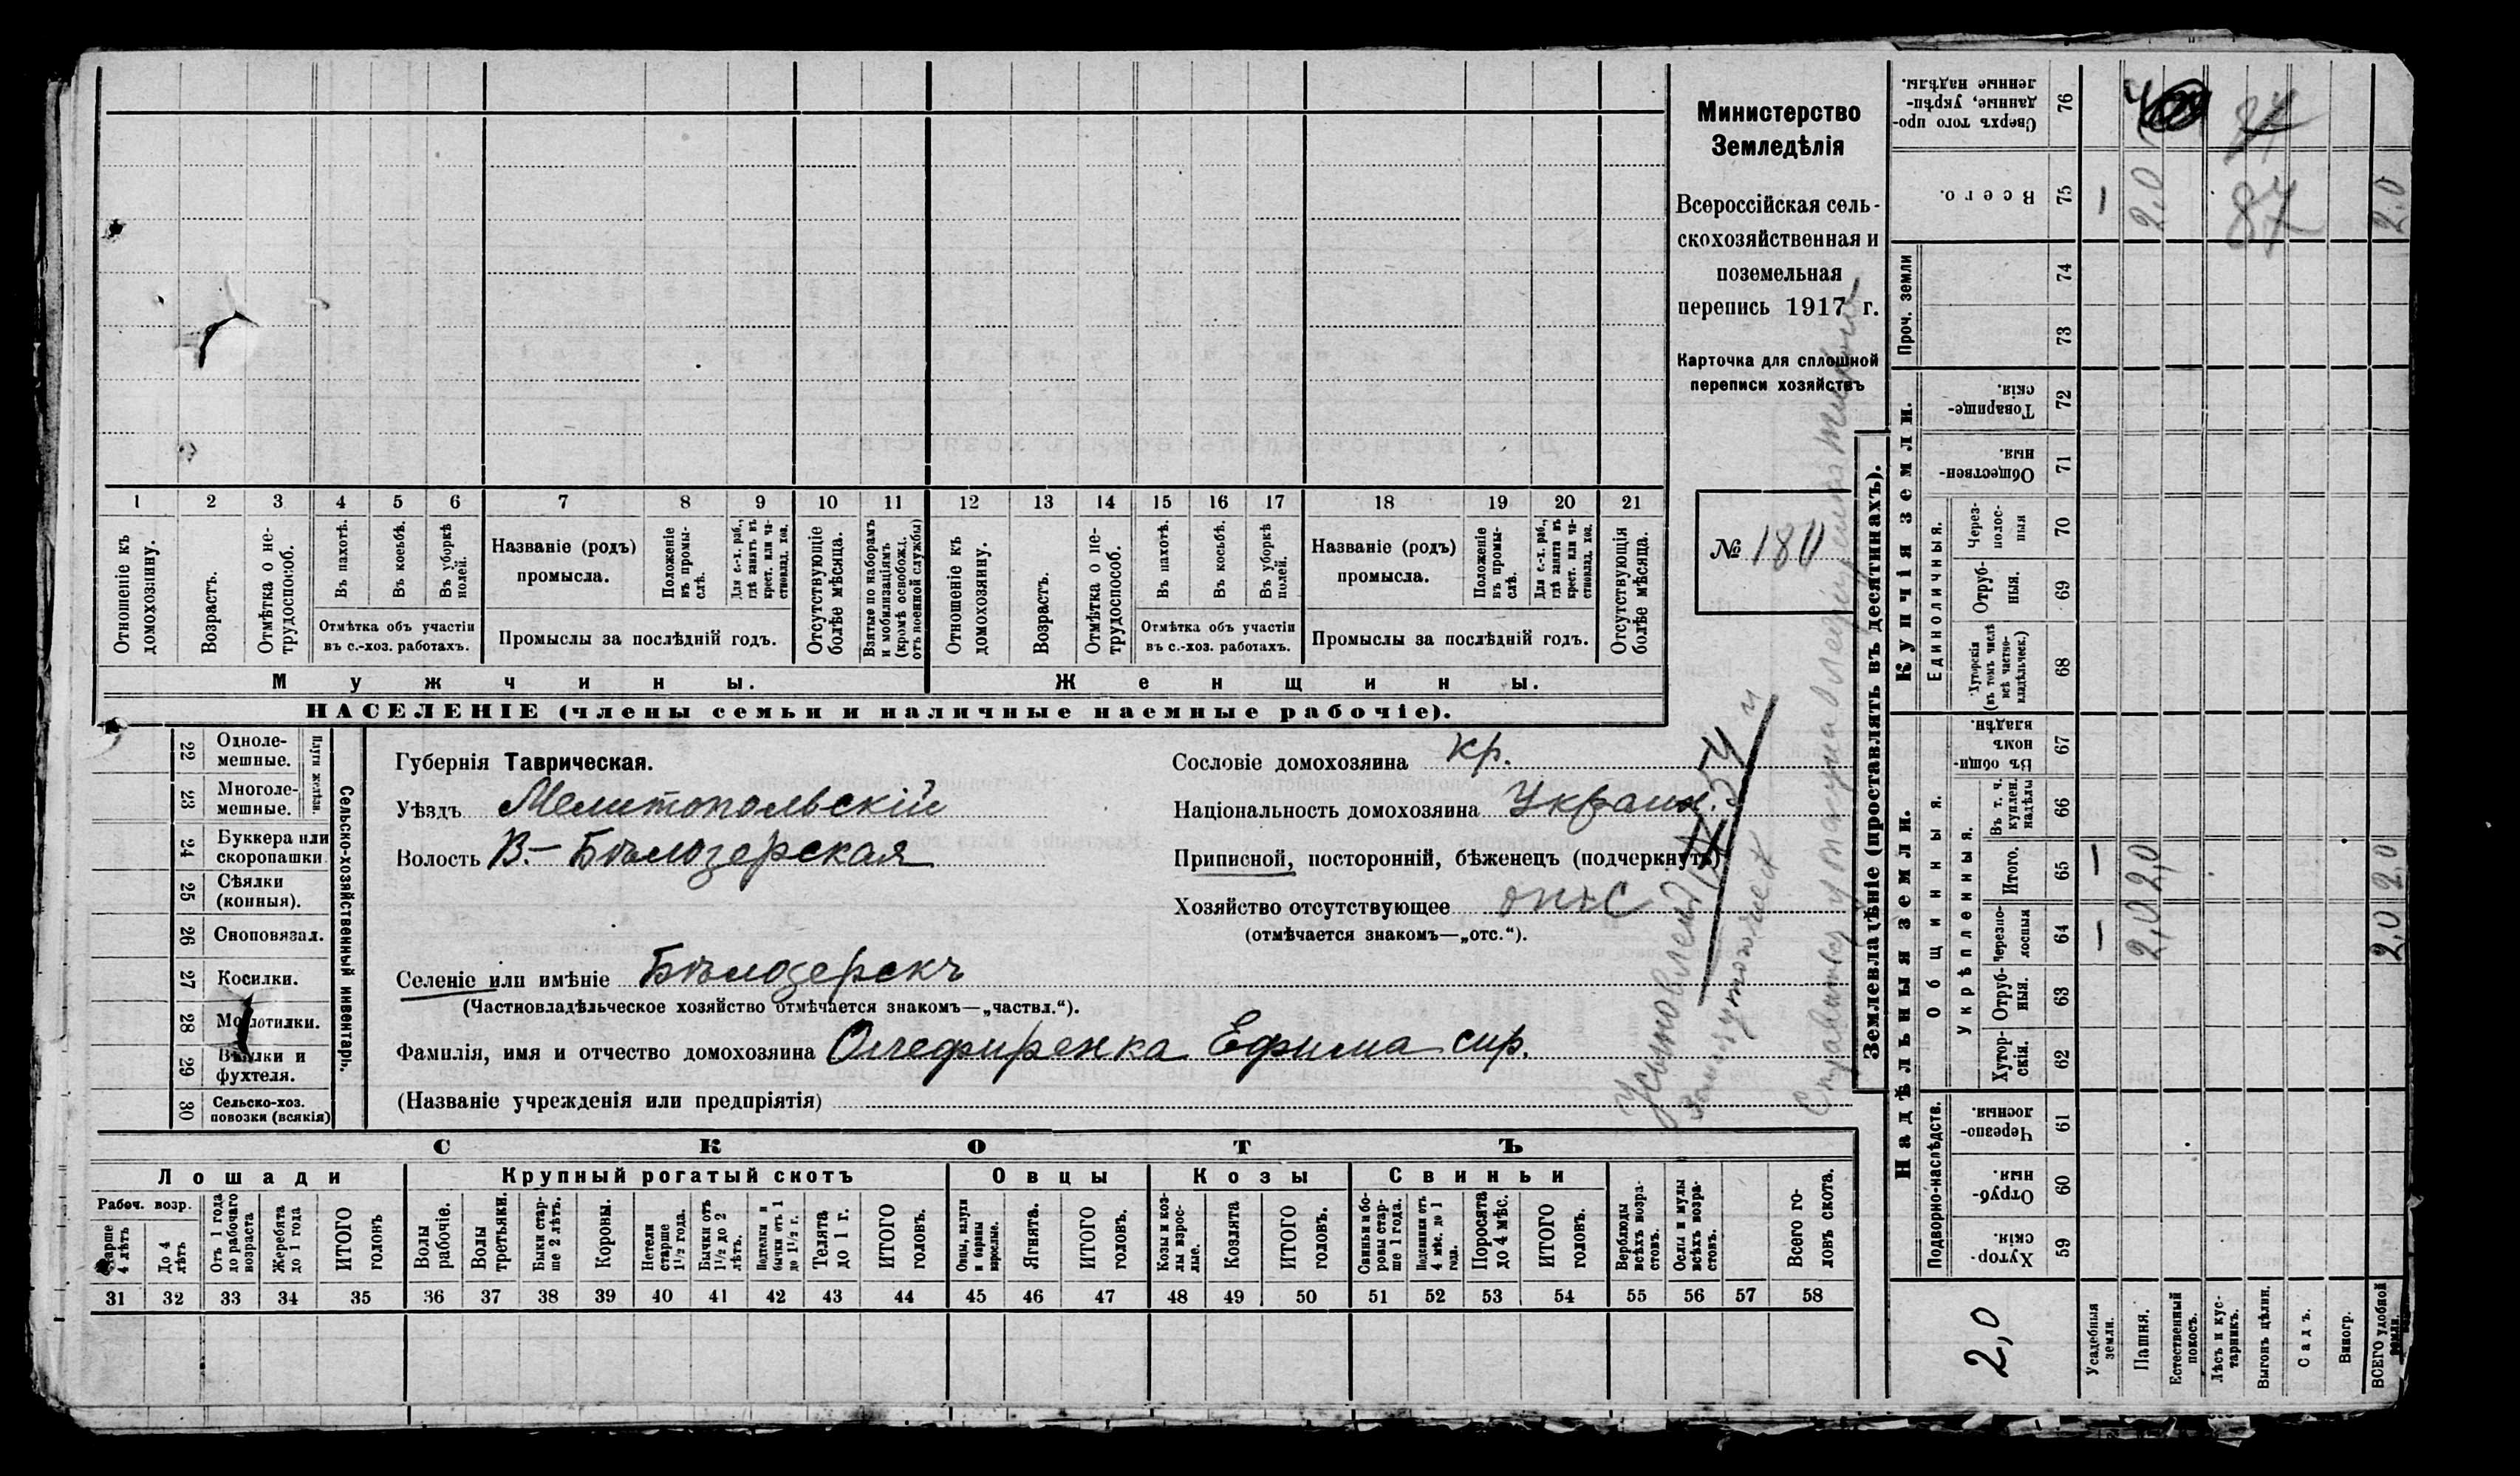 1 2 3 4 5 6 7 8 9 10 11 12 13 14 15 16 17 18 19 20 21
Отношеніе къ домохозяину.
Возрастъ.
Отмѣтка о не-
трудоспособ.
Въ пахотѣ.
Въ косьбѣ.
Въ уборкѣ
полей.
Отмѣтка объ участіи
въ с.-хоз. работахъ.
Названіе (родъ)
промысла.
Положеніе
въ промы-
слѣ.
Для с.-х. раб.,
гдѣ занятъ въ
крест. или ча-
стновлад. хоз.
Промыслы за послѣдній годъ.
Отсутствующіе
болѣе мѣсяца.
Взятые по наборамъ
и мобилизаціямъ
(кромѣ освобожд.
отъ военной службы)
Отношеніе къ
домохозяину.
Возрастъ.
Отмѣтка о не-
трудоспособ.
Въ пахотѣ.
Въ косьбѣ.
Въ уборкѣ
полей.
Отмѣтка объ участіи
въ с.-хоз. работахъ.
Названіе (родъ)
промысла.
Положеніе
въ промы-
слѣ.
Для с.-х. раб.,
гдѣ занята въ
крест. или ча-
стновлад. хоз.
Промыслы за послѣдній годъ.
Отсутствующія
болѣе мѣсяца.
Мужчины.
Женщины.
НАСЕЛЕНІЕ (члены семьи и наличные наемные рабочіе).
Министерство
Земледѣлія
Всероссійская сель-
скохозяйственная и
поземельная
перепись 1917 г.
Карточка для сплошной
переписи хозяйствъ
№ 180
22 Одноле-
мешные.
23 Многоле-
мешные.
Плуги желѣзн.
24 Буккера или
скоропашки
25 Сѣялки
(конныя).
26 Сноповязал.
27 Косилки.
28 Молотилки.
29 Вѣялки и
фухтеля.
30 Сельско-хоз.
повозки (всякія)
Сельско-хозяйственный инвентарь.
Губернія Таврическая.
Уѣздъ Мелитопольскій
Волость В.-Бѣлозерская
Селеніе или имѣніе Бѣлозерскъ
(Частновладѣльческое хозяйство отмѣчается знакомъ—„частвл.“).
Фамилія, имя и отчество домохозяина Олефиренка Ефима сир.
(Названіе учрежденія или предпріятія)
Сословіе домохозяина кр.
Національность домохозяина Украин.
Приписной, посторонній, бѣженецъ (подчеркнуть)
Хозяйство отсутствующее отс
(отмѣчается знакомъ—„отс.“).
СКОТЪ
Лошади
Крупный рогатый скотъ
Овцы
Козы
Свиньи
Рабоч. возр.
Старше
4 лѣтъ
До 4
лѣтъ
Отъ 1 года
до рабочаго
возраста
Жеребята
до 1 года
ИТОГО
головъ
Волы
рабочіе.
Волы
третьяки.
Быки стар-
ше 2 лѣтъ.
Коровы.
Нетели
старше
1½ года.
Бычки отъ
1½ до 2
лѣтъ.
Подтелки и
бычки отъ 1
до 1½ г.
Телята
до 1 г.
ИТОГО
головъ.
Овцы, валухи
и бараны
взрослые.
Ягнята.
ИТОГО
головъ.
Козы и коз-
лы взрос-
лые.
Козлята
ИТОГО
головъ.
Свиньи и бо-
ровы стар-
ше 1 года.
Подсвинки отъ
4 мѣс. до 1
года.
Поросята
до 4 мѣс.
ИТОГО
головъ.
Верблюды
всѣхъ возра-
стовъ.
Ослы и мулы
всѣхъ возра-
стовъ.
Всего го-
ловъ скота.
31 32 33 34 35 36 37 38 39 40 41 42 43 44 45 46 47 48 49 50 51 52 53 54 55 56 57 58
Землевладѣніе (проставлять въ десятинахъ).
Надѣльныя земли.
Купчія земли.
Проч. земли
Подворно-наслѣдств.
Общинныя.
Укрѣпленныя.
Единоличныя.
Сверхъ того про-
данные, укрѣп-
ленные надѣлы.
76
Всего.
75 — 2,0 87 2,0
74
73
Товарище-
скія.
72
Обществен-
ныя.
71
Через-
полос-
ныя
70
Отруб-
ныя.
69
Хуторскія
(въ томъ числѣ
всѣ частно-
владѣльческ.)
68
Въ общин-
номъ
владѣн.
67
Въ т. ч.
куплен.
надѣлы
66
Итого.
65 — 2,0 2,0
Черезпо-
лосныя
64 — 2,0 2,0
Отруб-
ныя.
63
Хутор-
скія.
62
Черезпо-
лосныя.
61
Отруб-
ныя.
60
Хутор-
скія.
59
2,0
Усадебныя
земли.
Пашня.
Естественный
покосъ.
Лѣсъ и кус-
тарникъ.
Выгонъ цѣлин.
Садъ.
Виногр.
ВСЕГО удобной
земли.